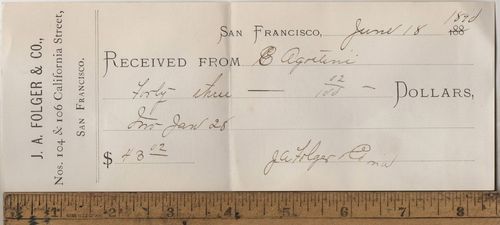 J. A. FOLGER & CO.,
Nos. 104 & 106 California Street,
SAN FRANCISCO.
SAN FRANCISCO, June 18 1890
188
RECEIVED FROM E Agostini
Forty three — 02/100 — DOLLARS,
Inv Jan 28
$ 43 02
J A Folger & Co
1 2 3 4 5 6 7 8